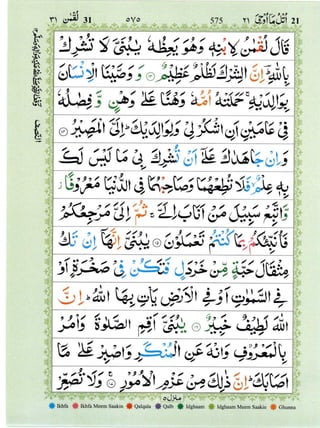 ٣١ لقمٰن 31 ٥٧٥ 575 اتل ما اوحی ٢١ 21
قَالَ لُقْمٰنُ لِابْنِهٖ وَهُوَ يَعِظُهٗ يٰبُنَىَّ لَا تُشْرِكْ
بِاللّٰهِ ؔؕ اِنَّ الشِّرْكَ لَظُلْمٌ عَظِيْمٌ ۝ وَوَصَّيْنَا الْاِنْسَانَ
بِوَالِدَيْهِ ۚ حَمَلَتْهُ اُمُّهٗ وَهْنًا عَلٰى وَهْنٍ وَّفِصٰلُهٗ
فِىْ عَامَيْنِ اَنِ اشْكُرْ لِىْ وَلِوَالِدَيْكَ ؕ اِلَىَّ الْمَصِيْرُ ۝
وَاِنْ جَاهَدٰكَ عَلٰٓى اَنْ تُشْرِكَ بِىْ مَا لَيْسَ لَكَ
بِهٖ عِلْمٌ ۙ فَلَا تُطِعْهُمَا وَصَاحِبْهُمَا فِى الدُّنْيَا مَعْرُوْفًا ز
وَّاتَّبِعْ سَبِيْلَ مَنْ اَنَابَ اِلَىَّ ۚ ثُمَّ اِلَىَّ مَرْجِعُكُمْ
فَاُنَبِّئُكُمْ بِمَا كُنْتُمْ تَعْمَلُوْنَ ۝ يٰبُنَىَّ اِنَّهَاۤ اِنْ تَكُ
مِثْقَالَ حَبَّةٍ مِّنْ خَرْدَلٍ فَتَكُنْ فِىْ صَخْرَةٍ اَوْ
فِى السَّمٰوٰتِ اَوْ فِى الْاَرْضِ يَاْتِ بِهَا اللّٰهُ ؕ اِنَّ
اللّٰهَ لَطِيْفٌ خَبِيْرٌ ۝ يٰبُنَىَّ اَقِمِ الصَّلٰوةَ وَاْمُرْ
بِالْمَعْرُوْفِ وَانْهَ عَنِ الْمُنْكَرِ وَاصْبِرْ عَلٰى مَاۤ
اَصَابَكَ ؕ اِنَّ ذٰلِكَ مِنْ عَزْمِ الْاُمُوْرِ ۝ وَلَا تُصَعِّرْ
منزل ٥
Ikhfa Ikhfa Meem Saakin Qalqala Qalb Idghaam Idghaam Meem Saakin Ghunna